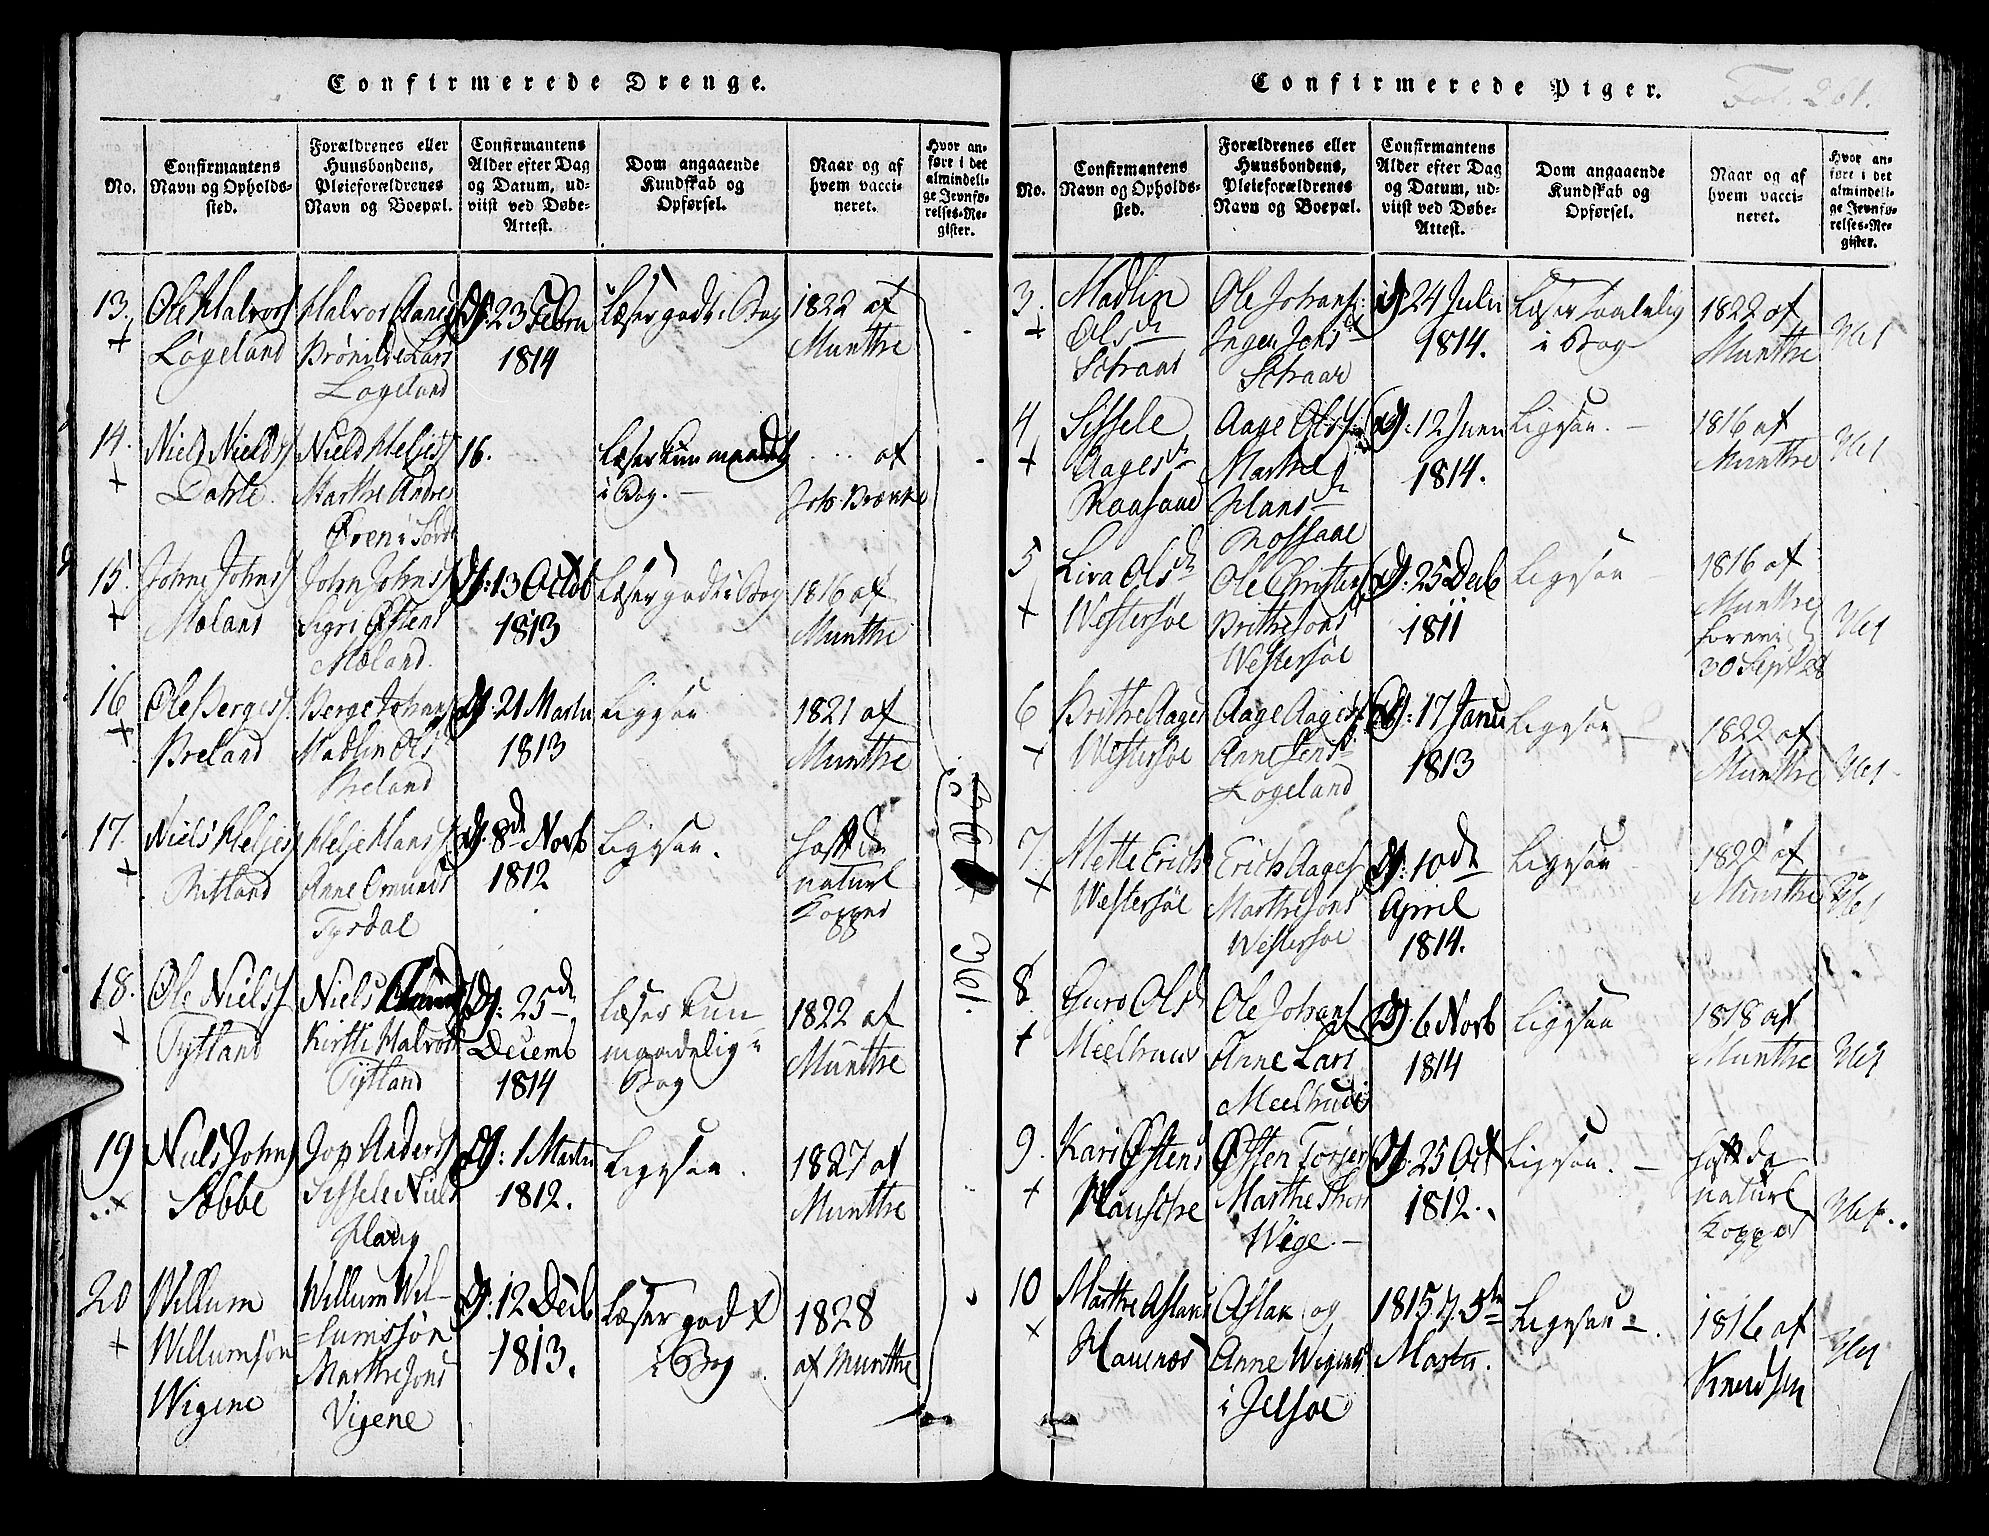 Confirmerede Drenge.
No.
Confirmantens
Navn og Opholds-
sted.
Forældrenes eller
Huusbondens,
Pleieforældrenes
Navn og Boepæl.
Confirmantens
Alder efter Dag
og Datum, ud-
viist ved Døbe-
Attest.
Dom angaaende
Kundskab og
Opførsel.
Naar og af
hvem vacci-
neret.
Hvor an-
føre i det
almindeli-
ge Jevnfø-
relses-Re-
gister.
13.
Ole Halvors
Løgeland
Halvor
Brønilde Lars
Løgeland
23 Febru
1814
Læser godt i Bog
1822 af
Munthe
14.
Niels Nielss
Dahle
Niels Heljess
Marthe Andre
16.
Læser kun maadel
i Bog. —
af
15.
Johne Johnss
Moeland
John Johnss
Sigri Østens
Mæland.
13 Octob
1813
Læser godt i Bog
1816 af
Munthe
16
Ole Bergess
Breland
Berge Johans
Madlin Ols
Breland
21 Martii
1813
Ligesaa
1821 af
Munthe
17.
Niels Heljes
Ritland
Helje Hanss
Anne Omunds
Tysdal
8de Novb
1812
Ligesaa.
haft de
naturl
Kopper
18.
Ole Nielss
Tytland
Niels
Kirsti Halvors
Tytland
25de
Decemb
1814
Læser kun
maadelig i
Bog
1822 af
Munthe
19
Niels Johns
Sobbe
Jop Anderss
Sissele Niels
Haug
1 Martii
1812.
Ligesaa.
1827 af
Munthe
20
Willum
Willumsøn
Wigene
Willum Wil-
=lumssøn
Marthe Jons
Vigene
12 Decb
1813.
Læser godt
i Bog
1828
af Munthe
361.
Confirmerede Piger.
Fol. 261.
No.
Confirmantens
Navn og Opholds-
sted.
Forældrenes eller
Huusbondens,
Pleieforældrenes
Navn og Boepæl.
Confirmantens
Alder efter Dag
og Datum, ud-
viist ved Døbe-
Attest.
Dom angaaende
Kundskab og
Opførsel.
Naar og af
hvem vacci-
neret.
Hvor an-
føre i det
almindeli-
ge Jevnfø-
relses-Re-
gister.
3.
Madlin
Olsd
Ole Johans
Inger Jensd
24 Julii
1814.
Læser taalelig
i Bog
1822 af
Munthe
4
Sissele
Aagesd
Aage Olss
Marthe
Hansd
12 Junii
1814.
Ligesaa. —
1816 af
Munthe
5
Liva Olsd
Westersøe
Ole Christens
Brithe Jons
Westersøe
25 Decb
1811
Ligesaa —
1816 af
Munthe
30 Sept 28
6
Brithe Aages
Westersøe
Aage Aagess
Anne Jensd
Løgeland
17 Janu
1813
Ligesaa —
1822 af
Munthe
7.
Mette Erichs
Westersøe
Erich Aages
Marthe Jons
Westersøe
10de
April
1814.
Ligesaa
1822 af
Munthe
8
Guro Olsd
Ole Johans
Anne Lars
6 Novb
1814
Ligesaa
1818 af
Munthe
9.
Kari Østens
Østen Torjer
Marthe Thor
Wige. —
25 Oct
1812.
Ligesaa. —
haft de
naturl
Kopper
10
Marthe Aslaks
Aslak og
Anne Wigens
i Jelsøe
1815 5te
Martii.
Ligesaa —.
1816 af
Knudsen